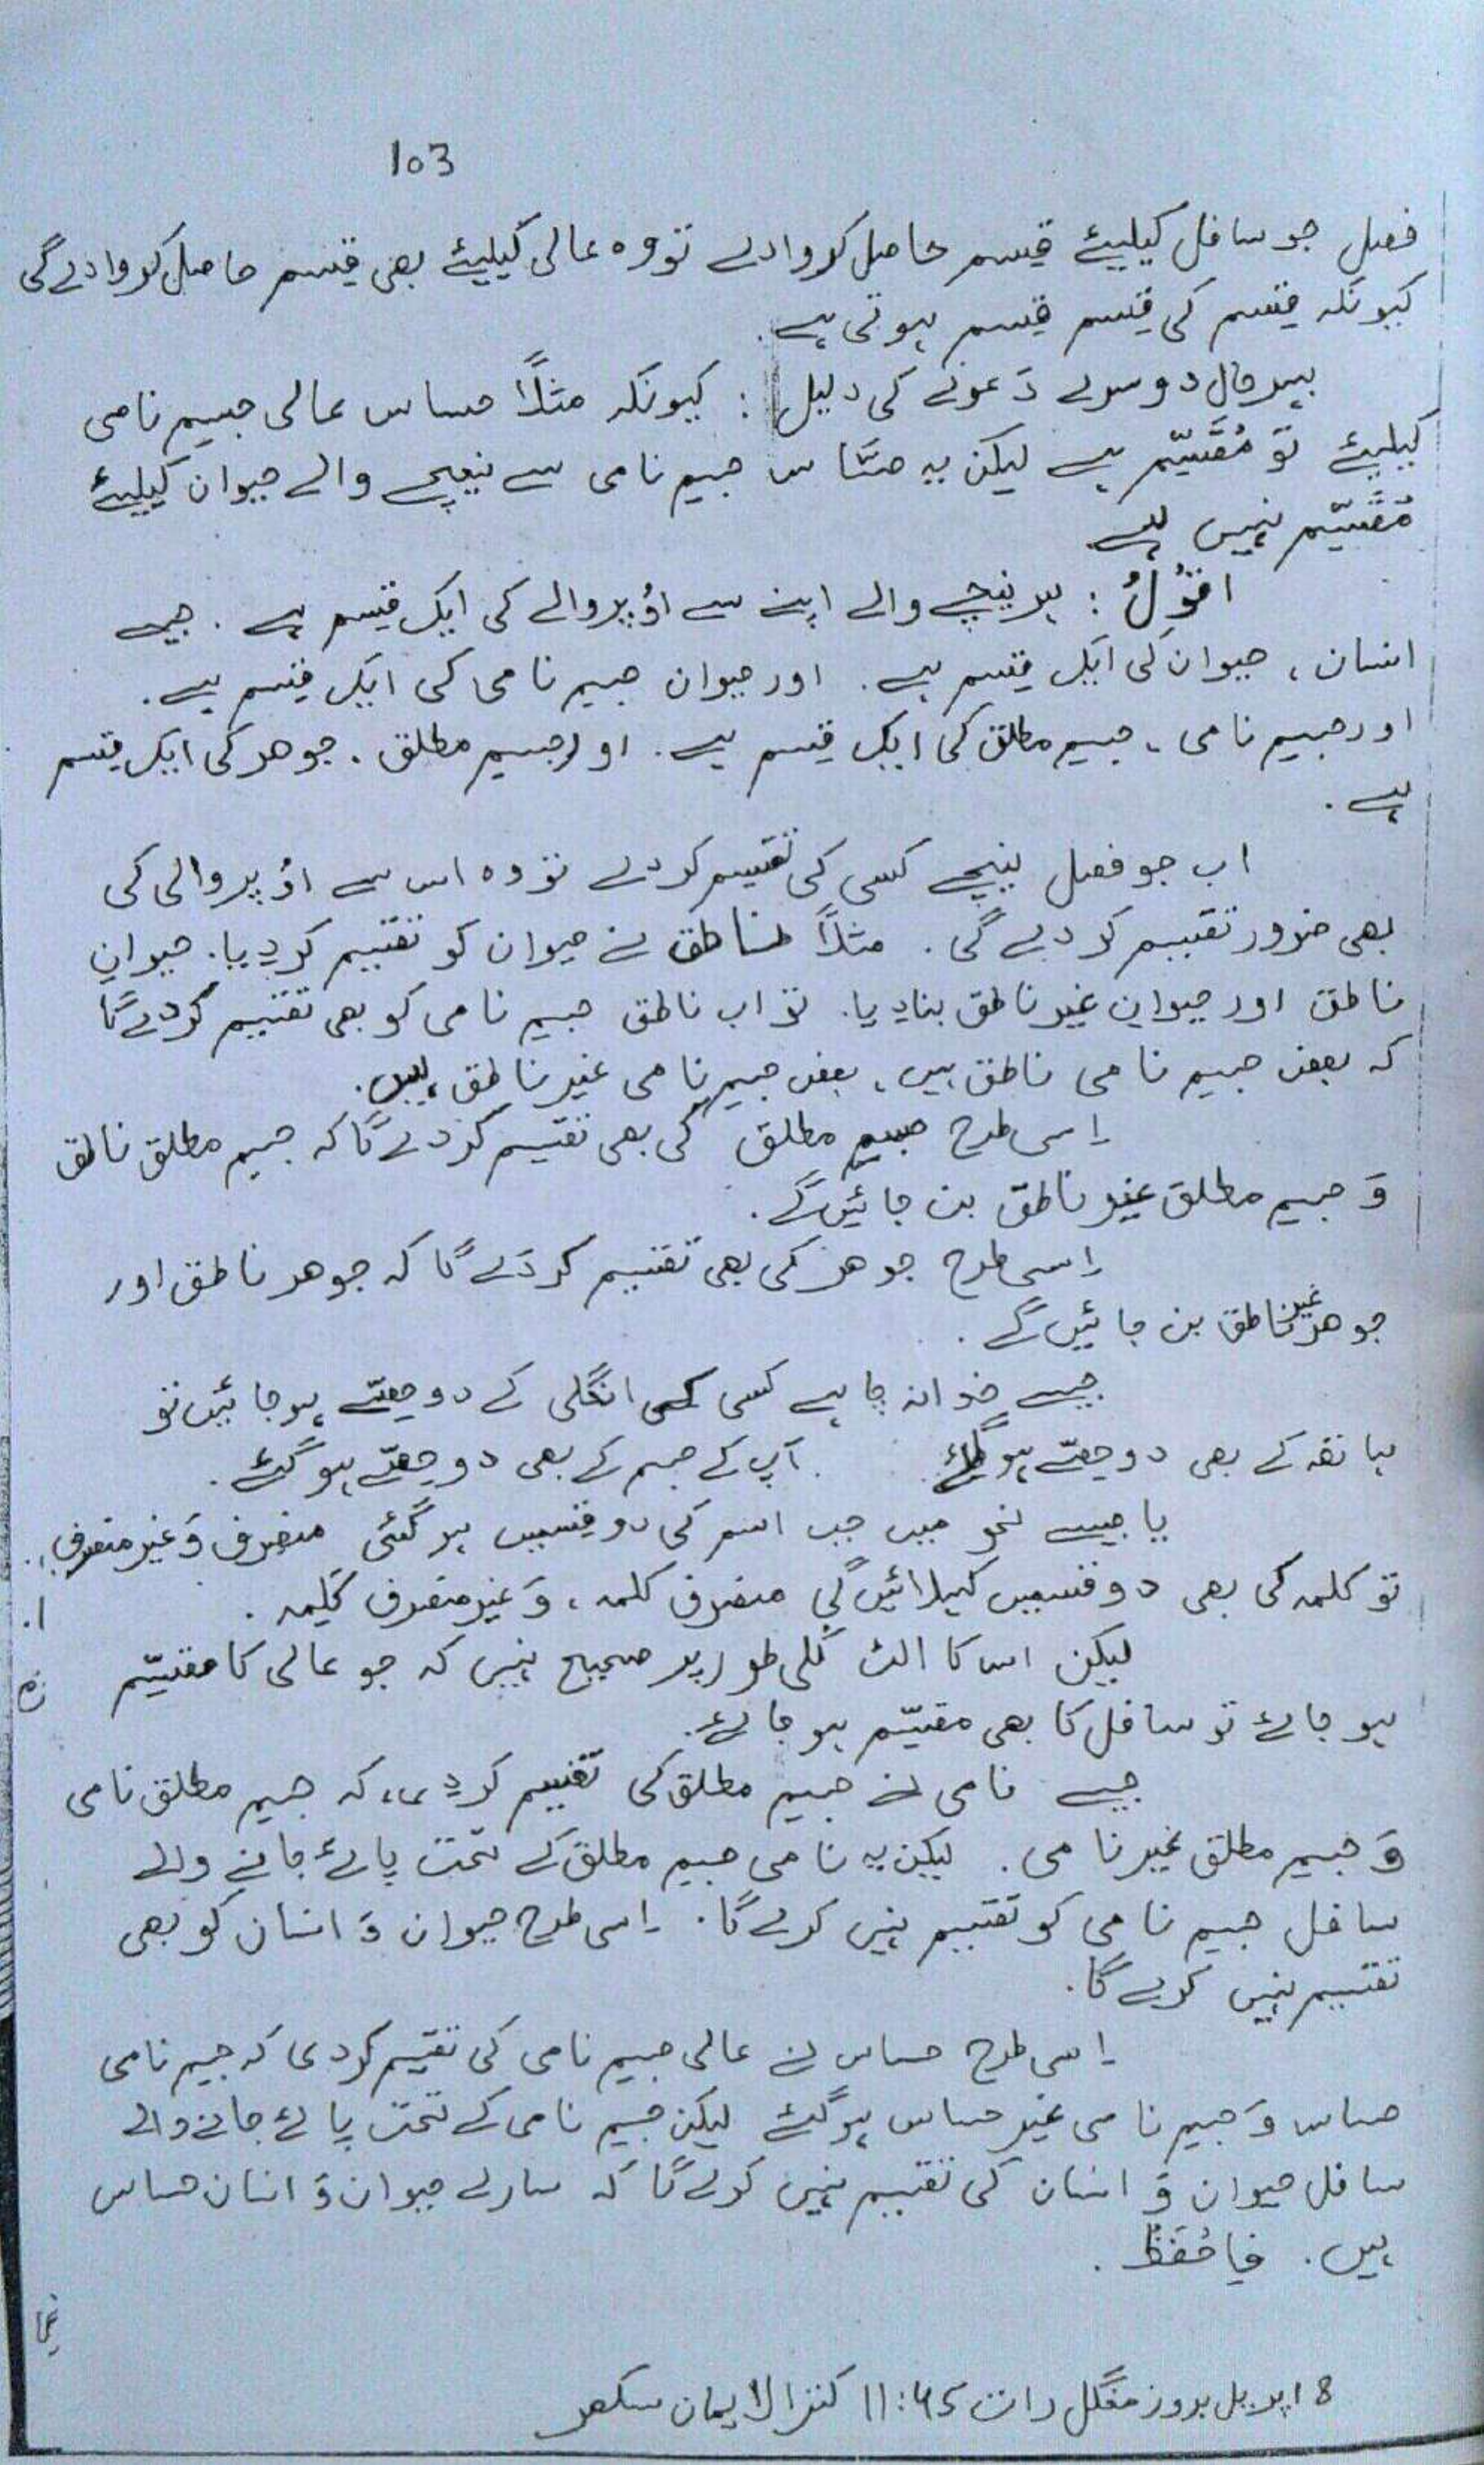 103
فصل جو سافل کیلیئے قسم حاصل کروادے تو وہ عالی کیلیئے بھی قسم حاصل کروادے گی
کیونکہ قسم کی قسم قسم ہوتی ہے.
بہرحال دوسرے دَعوے کی دلیل : کیونکہ مثلاً حساس عالی جسمِ نامی
کیلیئے تو مُقَسِّم ہے لیکن یہ حسَّاس جسم نامی سے نیچے والے حیوان کیلیئے
مُقَسِّم نہیں ہے
اقُوْلُ : ہر نیچے والے اپنے سے اُوپر والے کی ایک قسم ہے . جیسے
انسان ، حیوان کی ایک قسم ہے . اور حیوان جسم نامی کی ایک قسم ہے .
اور جسم نامی ، جسم مطلق کی ایک قسم ہے . اور جسم مطلق . جوھر کی ایک قسم
ہے .
اب جو فصل نیچے کسی کی تقسیم کردے تو وہ اس سے اُوپر والی کی
بھی ضرور تقسیم کر دے گی . مثلاً ناطق نے حیوان کو تقسیم کردیا . حیوانِ
ناطق اور حیوانِ غیر ناطق بنادیا . تو اب ناطق جسم نامی کو بھی تقسیم کردے گا
کہ بعض جسم نامی ناطق ہیں ، بعض جسم نامی غیر ناطق ہیں .
اِسی طرح جسم مطلق کی بھی تقسیم کردے گا کہ جسم مطلق ناطق
وَ جسم مطلق غیر ناطق بن جائیں گے .
اِسی طرح جوھر کی بھی تقسیم کردے گا کہ جوھر ناطق اور
جوھر غیر ناطق بن جائیں گے .
جیسے خدا نہ چاہے کسی کی انگلی کے دو حصّے ہوجائیں تو
ہاتھ کے بھی دو حصّے ہوگئے . آپ کے جسم کے بھی دو حصّے ہوگئے .
یا جیسے نحو میں جب اسم کی دو قسمیں ہوگئی منصرف وَ غیر منصرف
تو کلمہ کی بھی دو قسمیں کہلائیں گی منصرف کلمہ ، وَ غیر منصرف کلِمہ .
لیکن اس کا الٹ کُلی طور پر صحیح نہیں کہ جو عالی کا مقسِّم
ہو جائے تو سافل کا بھی مقسِّم ہو جائے .
جیسے نامی نے جسم مطلق کی تقسیم کردِی ، کہ جسم مطلق نامی
وَ جسم مطلق غیر نامی . لیکن یہ نامی جسم مطلق کے تحت پائے جانے والے
سافل جسم نامی کو تقسیم نہیں کرے گا . اِسی طرح حیوان وَ انسان کو بھی
تقسیم نہیں کرے گا .
اِسی طرح حساس نے عالی جسم نامی کی تقسیم کردی کہ جسم نامی
حساس وَ جسم نامی غیر حساس ہوگئے لیکن جسم نامی کے تحت پائے جانے والے
سافل حیوان وَ انسان کی تقسیم نہیں کرے گا کہ سارے حیوان وَ انسان حساس
ہیں . فاحْفَظْ .
8 اپریل بروز منگل رات 11:45 کنزالایمان سکھر